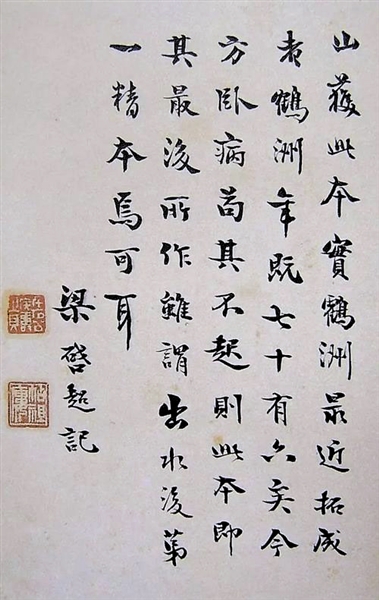 山獲此本實鶴洲最近拓成
者鶴洲年既七十有六矣今
方卧病苟其不起則此本即
其最後所作雖謂出水後第
一精本焉可耳
梁啓超記